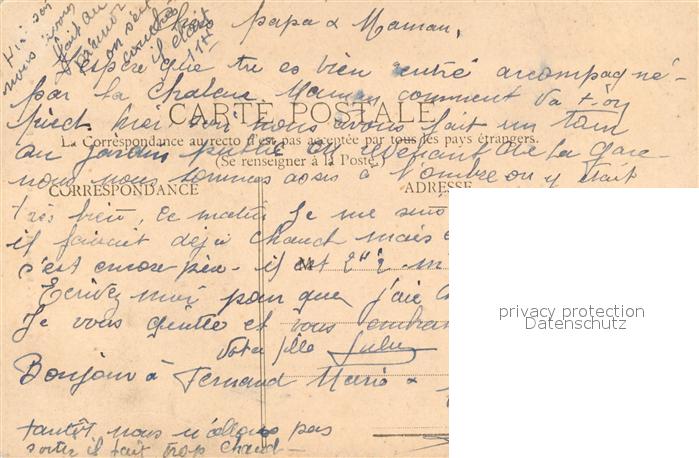 Hier soir
nous avons
fait au
on s'est
couchés
il était
11h
Chers papa & Maman,
J'espère que tu es bien rentré accompagné
par la chaleur Maman comment va t-on
CARTE POSTALE
pied. hier soir nous avons fait un tour
La Correspondance au recto n'est pas acceptée par tous les pays étrangers.
au jardin public en revenant de la gare
(Se renseigner à la Poste.)
nous nous sommes assis à l'ombre on y était
CORRESPONDANCE
ADRESSE
très bien, ce matin Je me suis
il faisait déjà chaud mais
s'est encore pire - il est 2h½
M
Ecrivez moi pour que j'aie
Je vous quitte et vous
votre fille
Bonjour à Fernand Marie &
tantôt nous n'allons pas
sortir il fait trop chaud -
privacy protection
Datenschutz